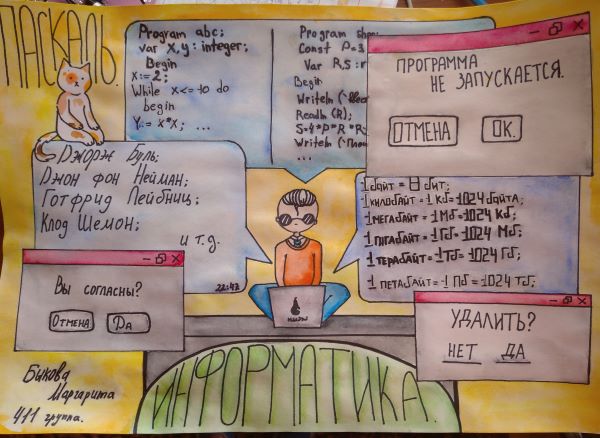 ПАСКАЛЬ.
Program abc;
var X,y: integer;
Begin
x:=2;
While x<=10 do
begin
Y:=X*X; ...
Const P=3
Var R,S:r
Begin
Writeln
Readln (R);
S:=4*P*R*R
Writeln
...
ПРОГРАММА
НЕ ЗАПУСКАЕТСЯ.
ОТМЕНА ОК.
Джорж Буль;
Джон фон Нейман;
Готфрид Лейбниц;
Клод Шемон;
и т.д.
22:43
1 байт = 8 бит;
1 килобайт = 1 Кб = 1024 байта;
1 мегабайт = 1 Мб = 1024 Кб;
1 гигабайт = 1 Гб = 1024 Мб;
1 терабайт = 1 Тб = 1024 Гб;
1 петабайт = 1 Пб = 1024 Тб;
Вы согласны?
Отмена Да
УДАЛИТЬ?
НЕТ ДА
Быкова
Маргарита
411 группа.
ИНФОРМАТИКА.